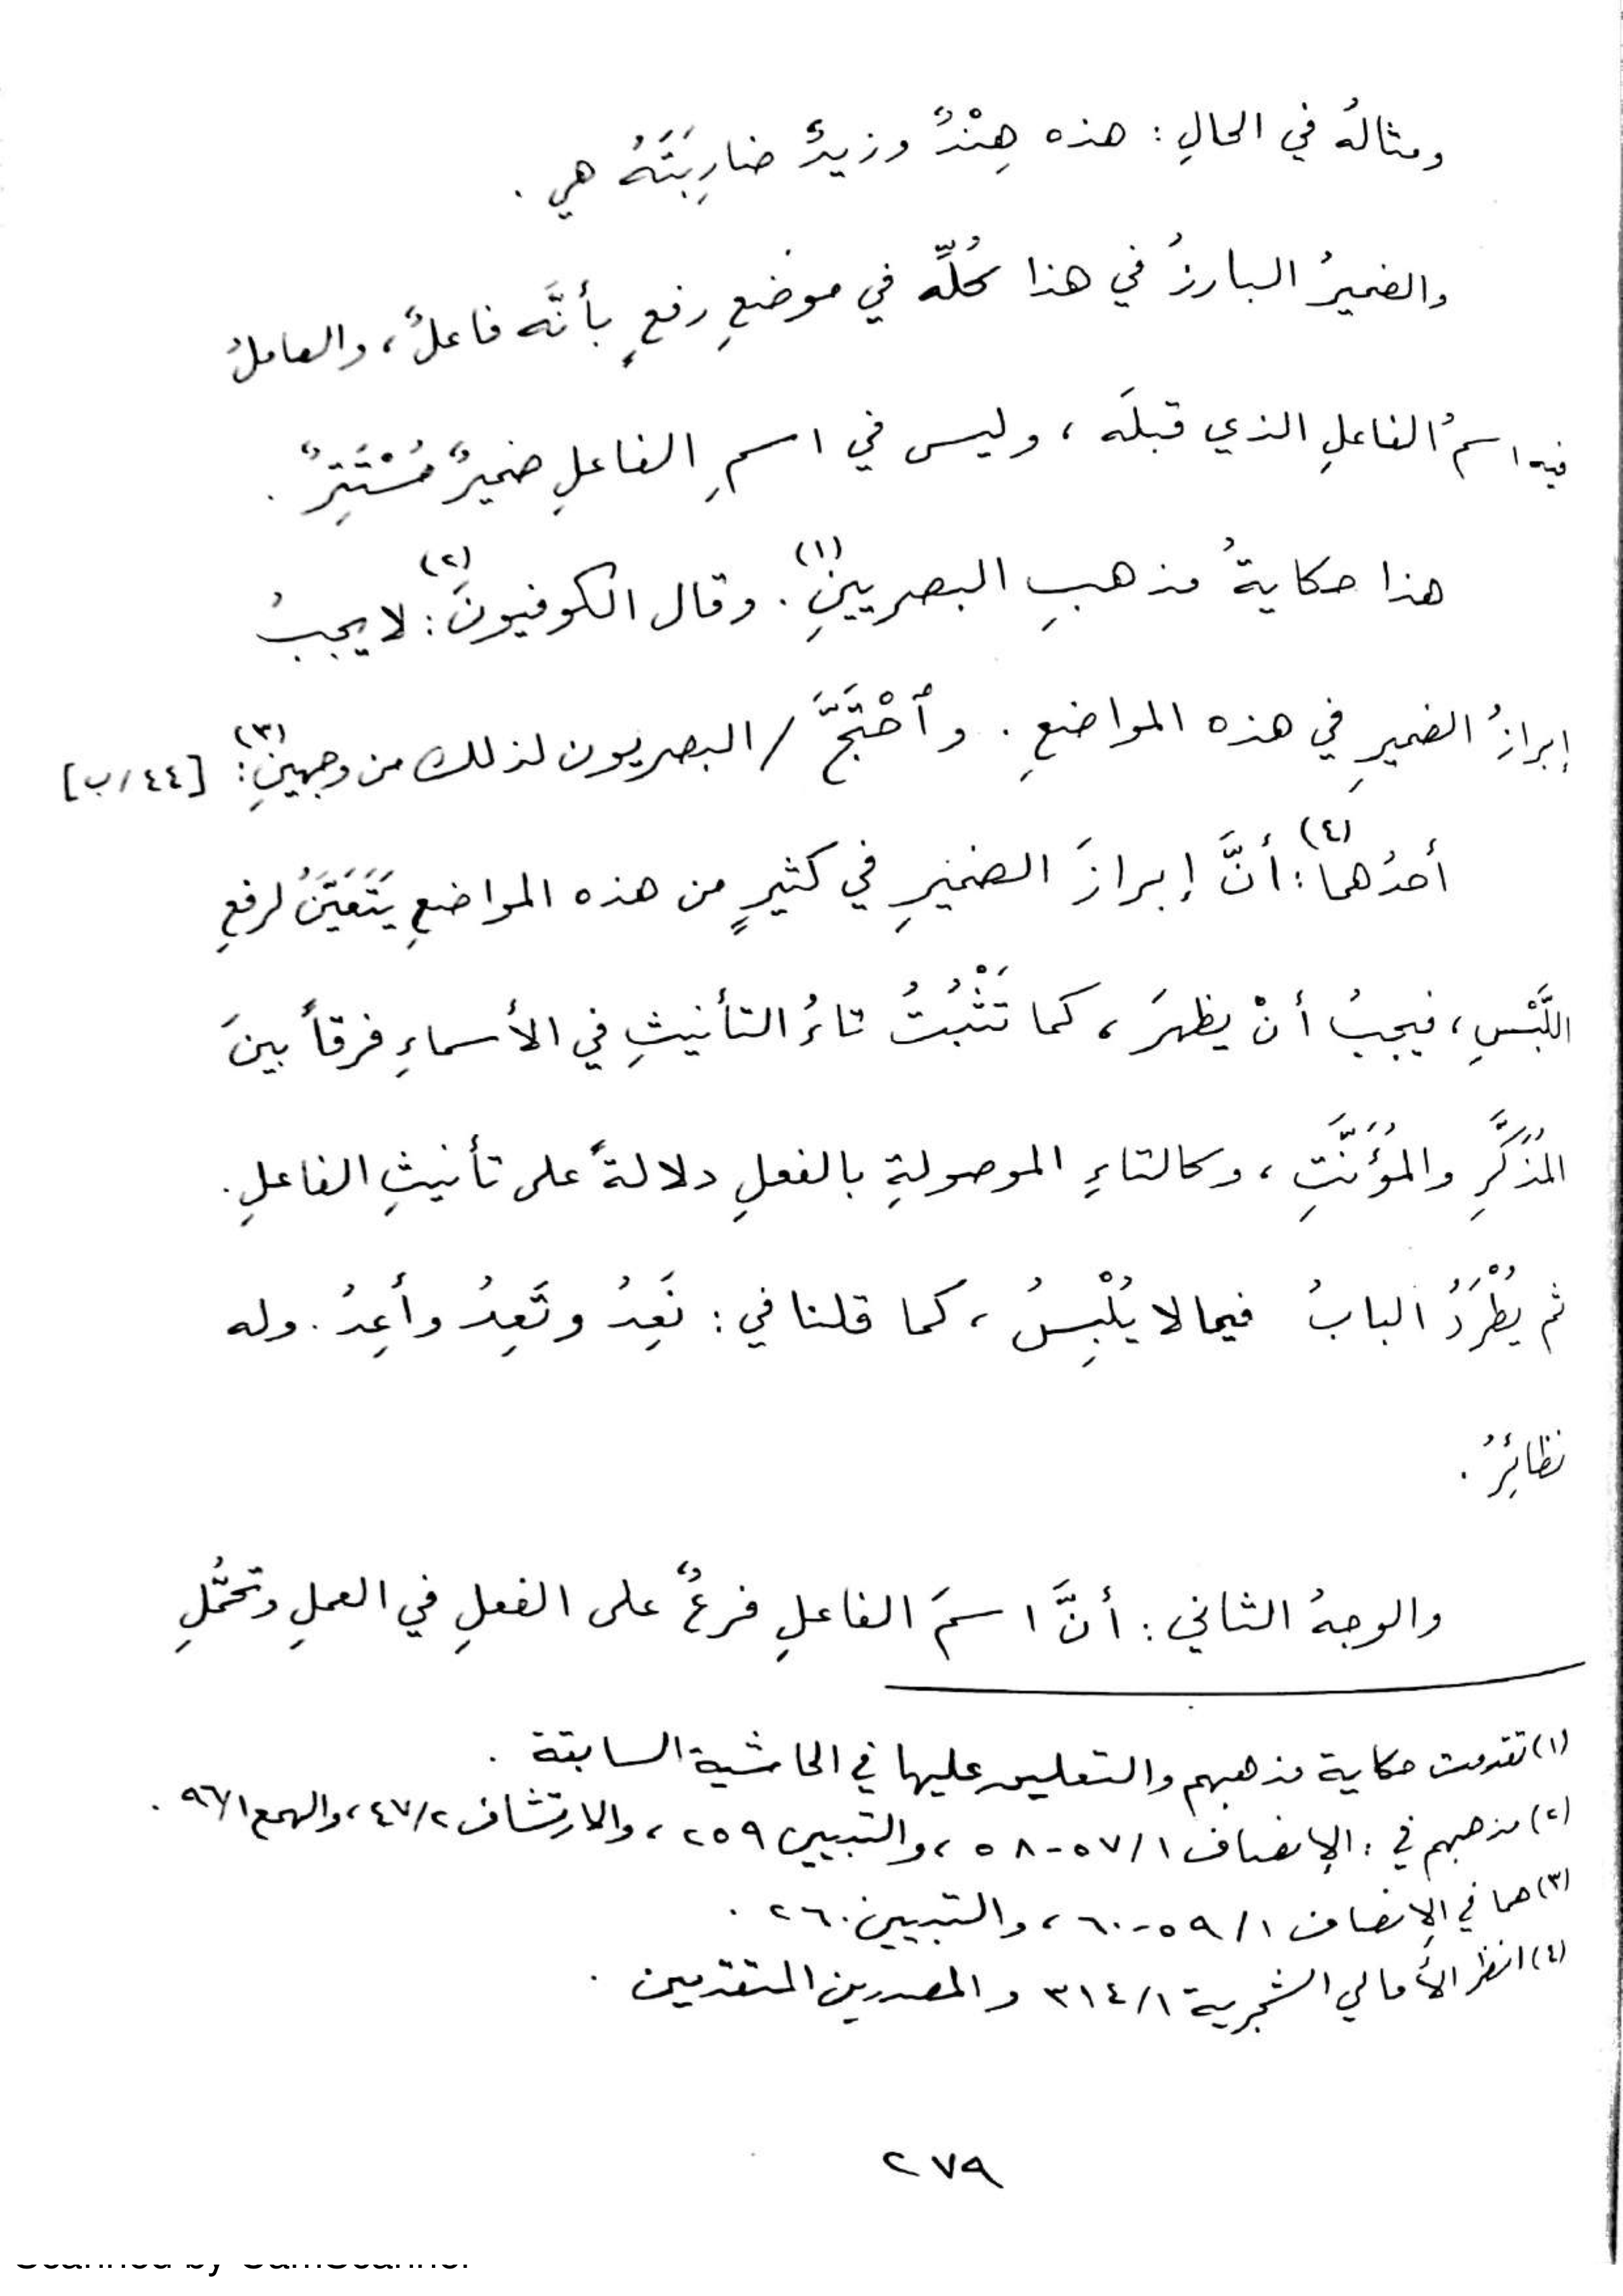 ومثالُه في الحالِ : هذه هِنْدٌ وزيدٌ ضارِبَتَهُ هي .
والضميرُ البارزُ في هذا كُلِّه في موضعِ رفعٍ بأنَّه فاعلٌ، والعاملُ
فيه اسمُ الفاعلِ الذي قبلَه ، وليس في اسمِ الفاعلِ ضميرٌ مُسْتَتِرٌ .
هذا حكايةُ مذهبِ البصريينَ (١) . وقال الكوفيونَ (٢) : لا يجبُ
إبرازُ الضميرِ في هذه المواضعِ . وٱحْتَجَّ / البصريون لذلك من وجهينِ (٣) : [٤٤/ب]
أحدُهما (٤) : أنَّ إبرازَ الضميرِ في كثيرٍ من هذه المواضعِ يَتَعَيَّنُ لرفعِ
اللَّبْسِ ، فيجبُ أنْ يظهرَ ، كما تَثْبُتُ تاءُ التأنيثِ في الأسماءِ فرقاً بينَ
المُذَكَّرِ والمُؤَنَّثِ ، وكالتاءِ الموصولةِ بالفعلِ دلالةً على تأنيثِ الفاعلِ .
ثم يُطْرَدُ البابُ فيما لا يُلْبِسُ ، كما قلنا في : نَعِدُ وتَعِدُ وأَعِدُ . وله
نظائِرُ .
والوجهُ الثاني : أنَّ اسمَ الفاعلِ فرعٌ على الفعلِ في العملِ وتحمُّلِ
(١) تقدمت حكاية مذهبهم والتعليق عليها في الحاشية السابقة .
(٢) مذهبهم في : الإنصاف ١/ ٥٧-٥٨ ، والتبيين ٢٥٩ ، والارتشاف ٢/ ٤٧ ، والهمع ١/ ٩٦ .
(٣) هما في الإنصاف ١/ ٥٩-٦٠ ، والتبيين ٢٦٠ .
(٤) انظر الأمالي الشجرية ١/ ٣١٤ والمصدرين المتقدمين .
٢٧٩
Scanned by CamScanner